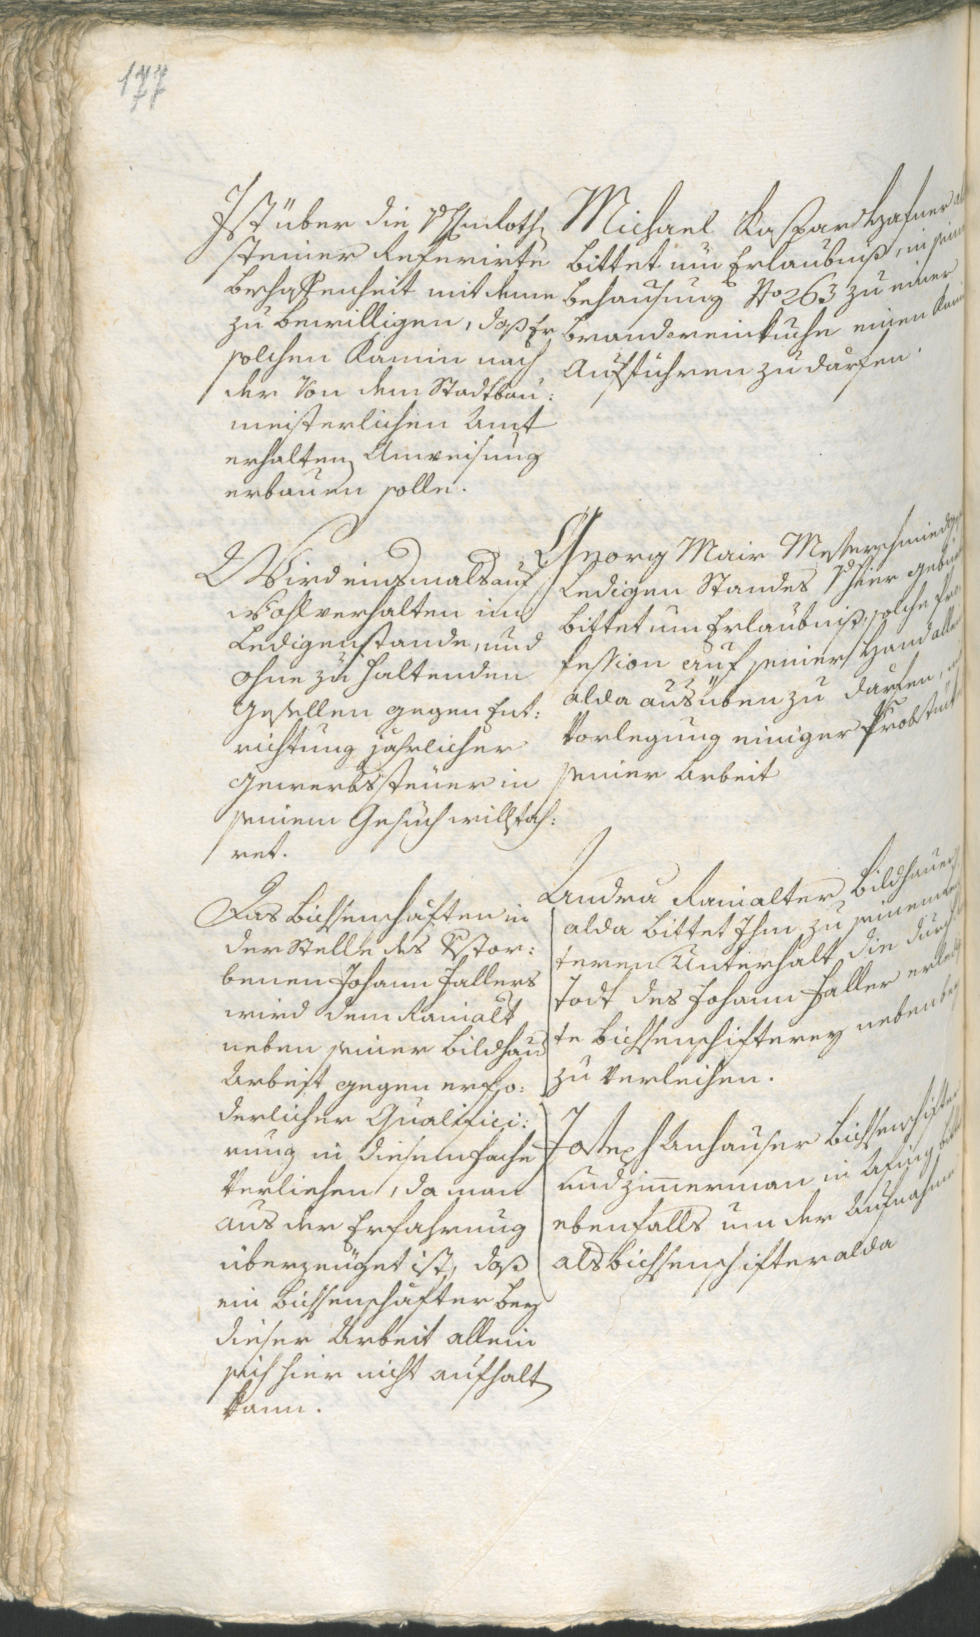 177
Ist über die
steiner referirte
Beschaffenheit mit deme
zu bewilligen, daß Er
solchen Kamin nach
der von dem Stadtbau:
meisterlichen Amt
erhalten Anweisung
erbauen solle.
Michael Kaspar Hafner
bittet um Erlaubniß, in seiner
Behausung No 263 zu einer
brandweinkuche einen
Aufführen zu därfen.
Wird einsmals auf
Wohlverhalten im
Ledigenstande, und
ohne zu haltenden
Gesellen gegen Ent:
richtung jährlicher
Gewerbssteuer in
seinem Gesuch willfah:
ret.
Georg Mair Messerschmied
Ledigen Standes hier
bittet um Erlaubniß, solche Pro
fession auf seiner Hand
alda ausüben zu därfen,
Vorlegung einiger Probstück
seiner Arbeit
Das Bichsenschäften in
der Stelle des Verstor:
benen Johann Fallers
wird dem Ramalt
neben seiner Bildhau
Arbeit gegen erfo:
derlicher Qualifici:
rung in diesem Fache
Verliehen, da man
aus der Erfahrung
überzeüget ist, daß
ein Bichsenschäfter bey
dieser Arbeit allein
sich hier nicht aufhalt
kann.
Andrä Ramalter Bildhauer
alda bittet Ihm zu seinem
teren Unterhalt die durch
Todt des Johann Faller
te Bichsenschifterey neben
zu verleihen.
Joseph Anhauser Bichsenschifter
und Zimmerman in
ebenfalls um der Aufnahm
als Bichsenschifter alda